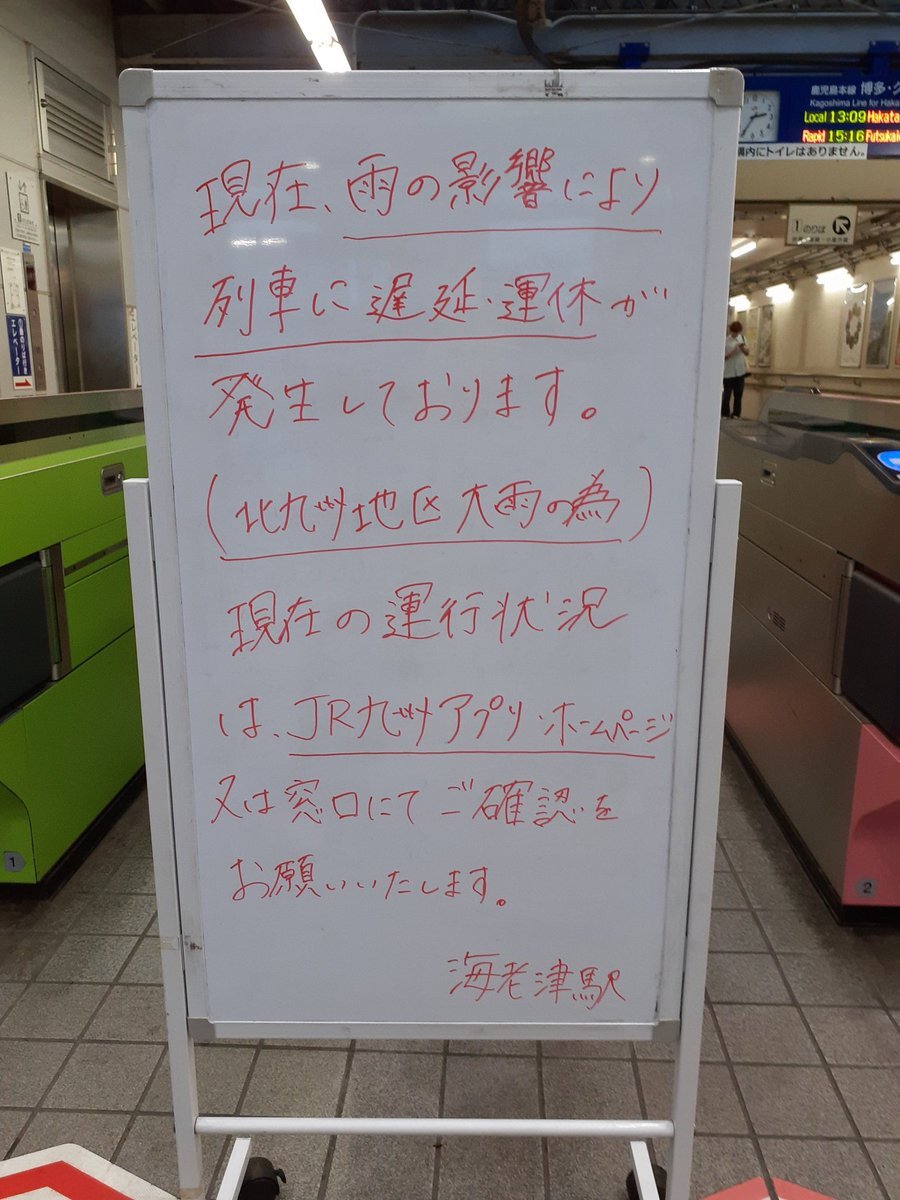 現在、雨の影響により
列車に遅延・運休が
発生しております。
(北九州地区大雨の為)
現在の運行状況
は、JR九州アプリ・ホームページ
又は窓口にてご確認を
お願いいたします。
海老津駅
鹿児島本線 博多・
Kagoshima Line for Haka
Local 13:09 Hakata
Rapid 15:16 Futsukai
構内にトイレはありません。
1 のりば
エレベーター
1
2